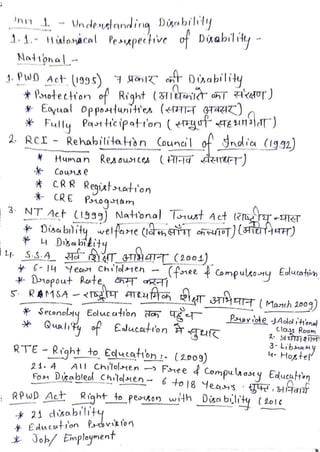 Unit 1 - Understanding Disability
1.1.- Historical Perspective of Disability -
National -
1. PWD Act (1995) 7 प्रकार की Disability
* Protection of Right (अधिकारों का संरक्षण)
* Equal Opportunities (समान अवसर)
* Fully Participation (सम्पूर्ण सहभागिता)
2. RCI - Rehabilitation Council of India (1992)
* Human Resources (मानव संसाधन)
* Course
* CRR Registration
* CRE Program
3. NT Act (1999) National Trust Act (राष्ट्रीय न्यास
* Disability welfare (विकलांग कल्याण) (अधिनियम)
* 4 Disability
4. S.S.A सर्व शिक्षा अभियान (2001)
* 6-14 Year Children - (free & Compulsory Education
* Dropout Rate कम करना
5- RAMSA - राष्ट्रीय माध्यमिक शिक्षा अभियान (March 2009)
* Secondry Education तक पहुँच
* Quality of Education में सुधार
Provide 1 Additional
Class Room
2-
3- Library
4- Hostel
RTE - Right to Education :- (2009)
21-A All Children → Free & Compulsory Education
For Disabled Children - 6 to 18 Years मुफ्त, अनिवार्य
RPWD Act Right to person with Disability (2016
* 21 disability
* Education Provision
* Job/ Employment